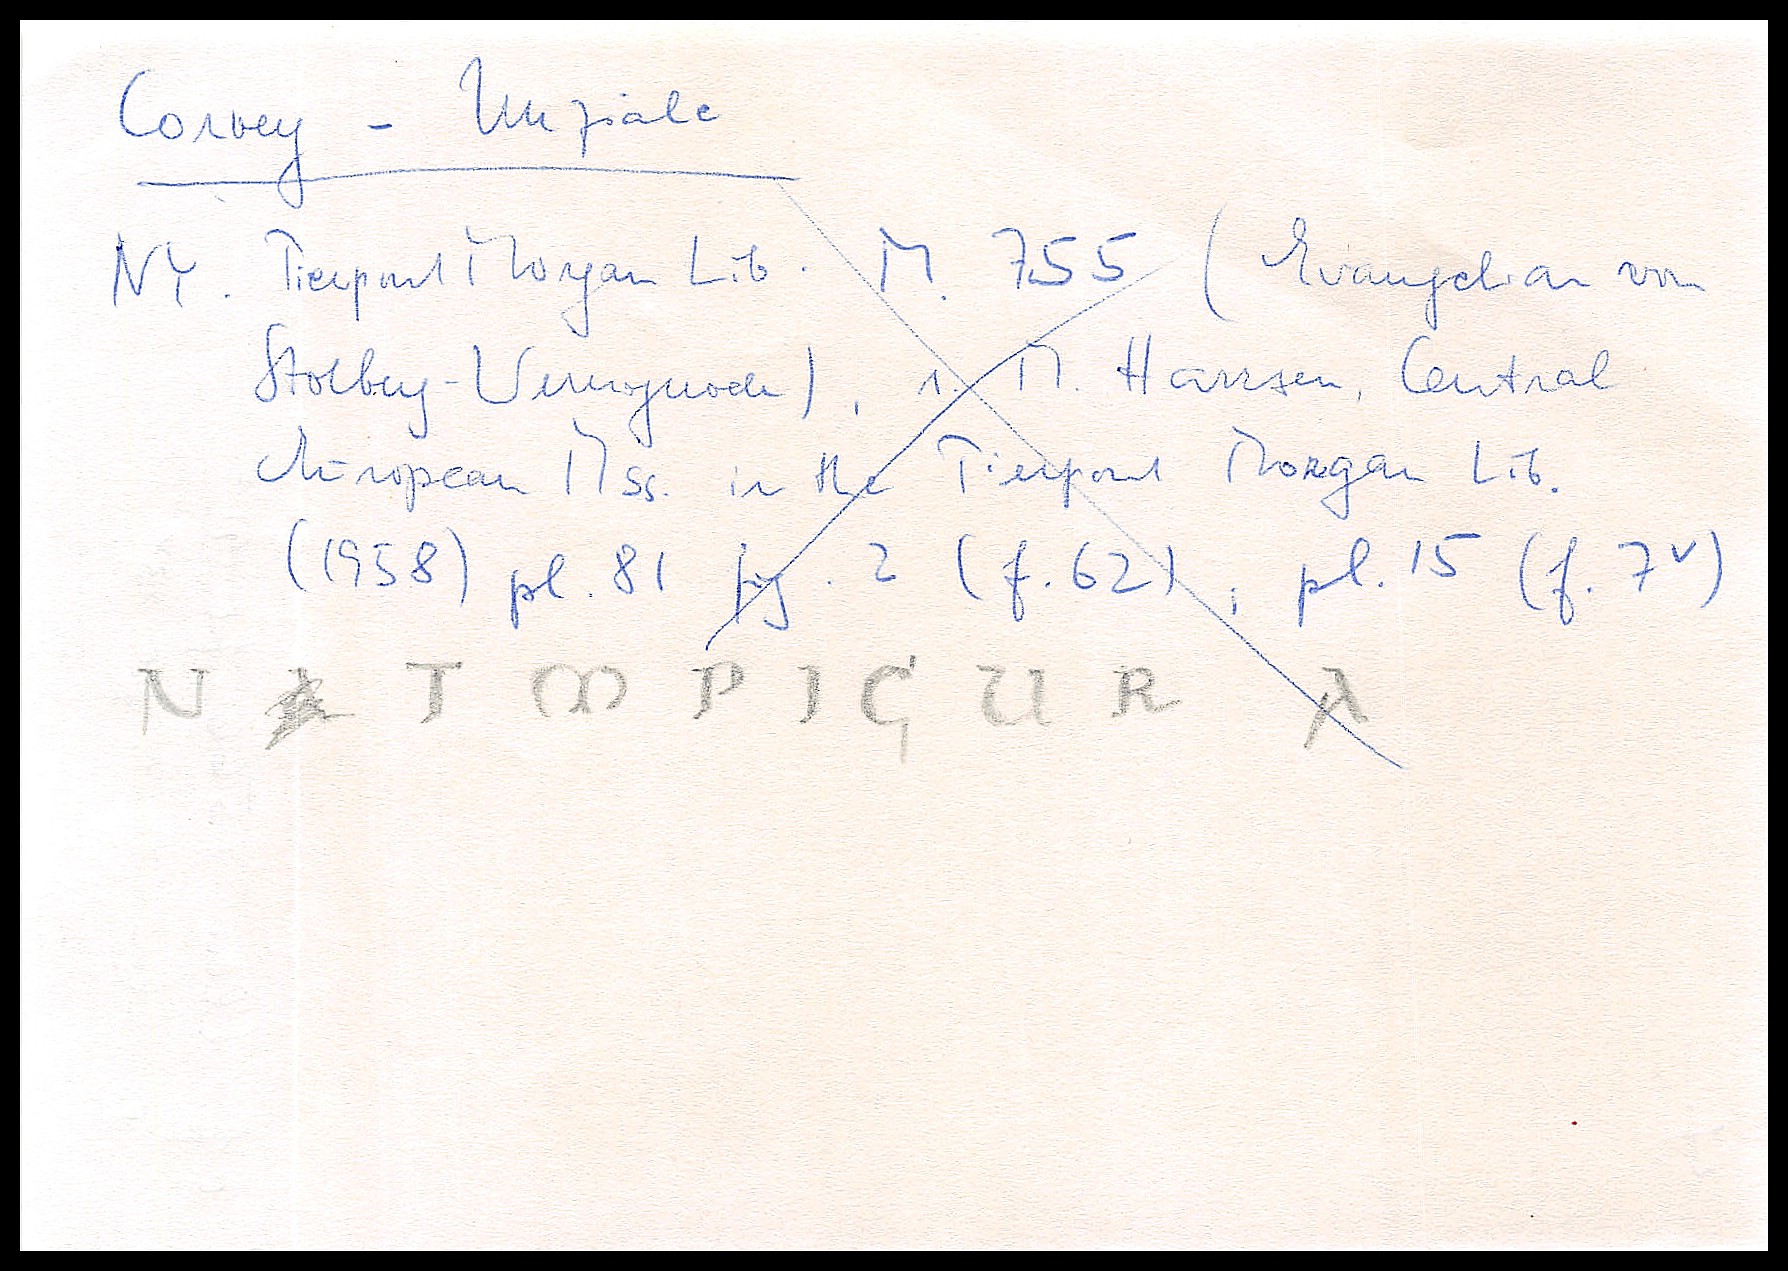 Corvey - Unziale
NY. Pierpont Morgan Lib. M. 755 (Evangeliar von
Stolberg-Wernigerode), s. M. Harrsen, Central
European Mss. in the Pierpont Morgan Lib.
(1958) pl. 81 fig. 2 (f. 62), pl. 15 (f. 7v)
N T M P I G U R A